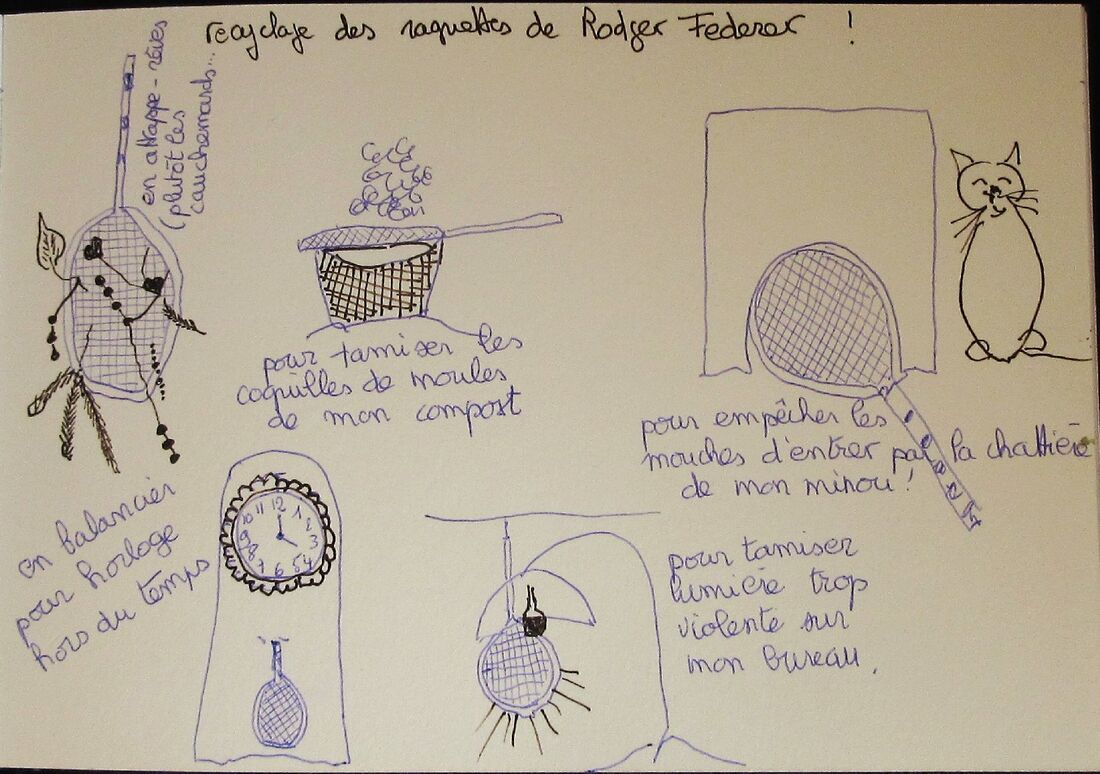 recyclage des raquettes de Rodger Federer !
en attrape-rêves
(plutôt les
cauchemards...
pour tamiser les
coquilles de moules
de mon compost
pour empêcher les
mouches d'entrer par la chattière
de mon minou !
en balancier
pour horloge
hors du temps
12 1 2 3 4 5 6 7 8 9 10 11
pour tamiser
lumière trop
violente sur
mon bureau.